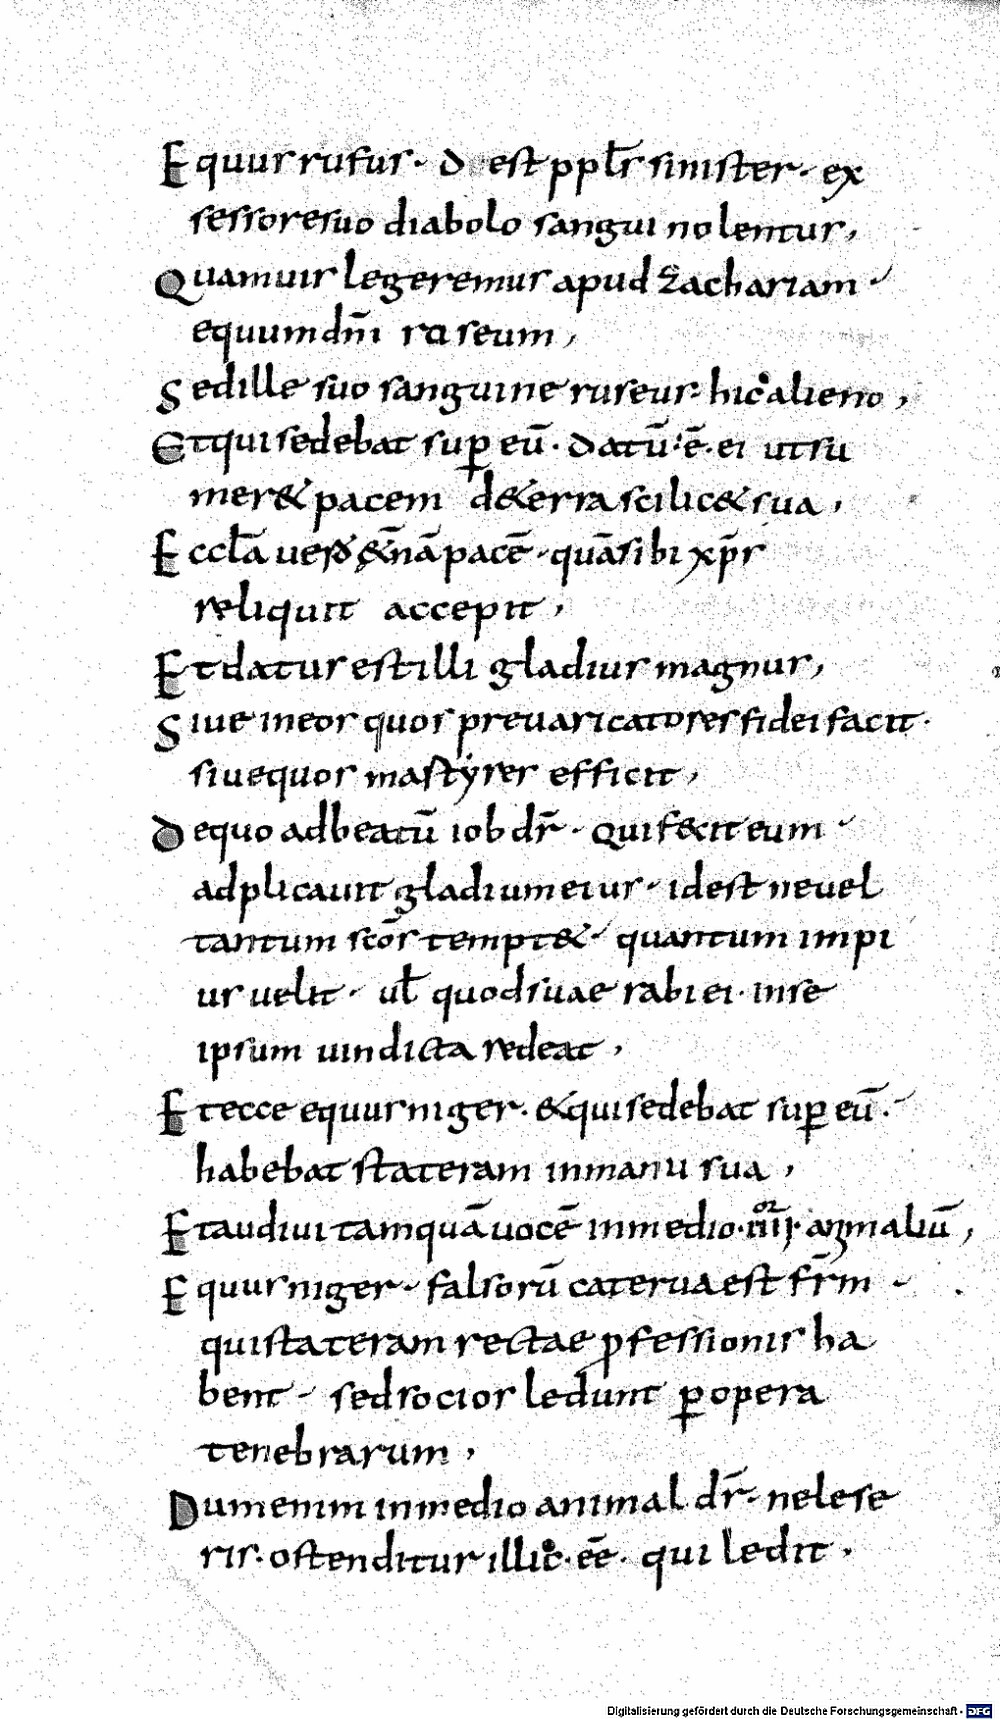 Equus rufus · d est pplꝰs sinister · ex
sessore suo diabolo sanguinolentus,
Quamuis legeremus apud zachariam ·
equum dñi roseum,
Sed ille suo sanguine ruseus · hic alieno,
Et qui sedebat sup eū · datū · ē · ei ut su
meret pacem de terra scilicet sua,
Ecclā uero æt̄nā pacē · quā sibi xp̄s
reliquit accepit,
Et datus est illi gladius magnus,
Siue in eos quos preuaricatores fidei facit ·
siue quos martyres efficit,
De quo ad beatū iob dr̄ · qui fecit eum
adplicauit gladium eius · id est ne uel
tantum scōs temptet · quantum impi
us uelit · ul̄ quod suae rabiei · in se
ipsum uindicta redeat,
Et ecce equus niger · & qui sedebat sup eū ·
habebat stateram in manu sua,
Et audiui tamquā uocē in medio · iiii or · animaliū,
Equus niger · falsorū caterua est fr̄m
qui stateram rectae pfessionis ha
bent · sed socios ledunt p opera
tenebrarum,
Dum enim in medio animal dr̄ · ne lese
ris · ostenditur illic · eē · qui ledit ·
Digitalisierung gefördert durch die Deutsche Forschungsgemeinschaft - DFG